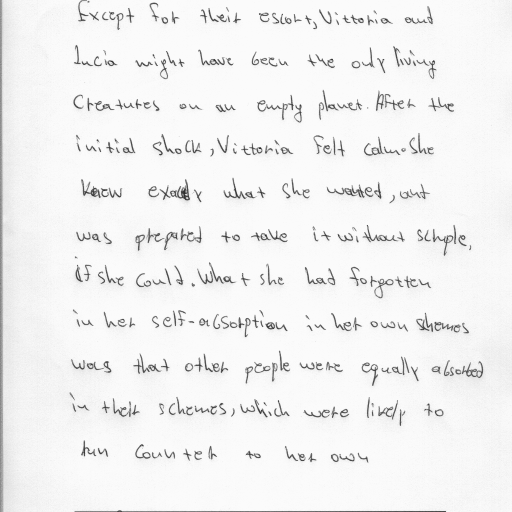 Except for their escort, Vittoria and
Lucia might have been the only living
creatures on an empty planet. After the
initial shock, Vittoria felt calm. She
knew exactly what she wanted, and
was prepared to take it without scruple,
if she could. What she had forgotten
in her self-absorption in her own schemes
was that other people were equally absorbed
in their schemes, which were likely to
run counter to her own